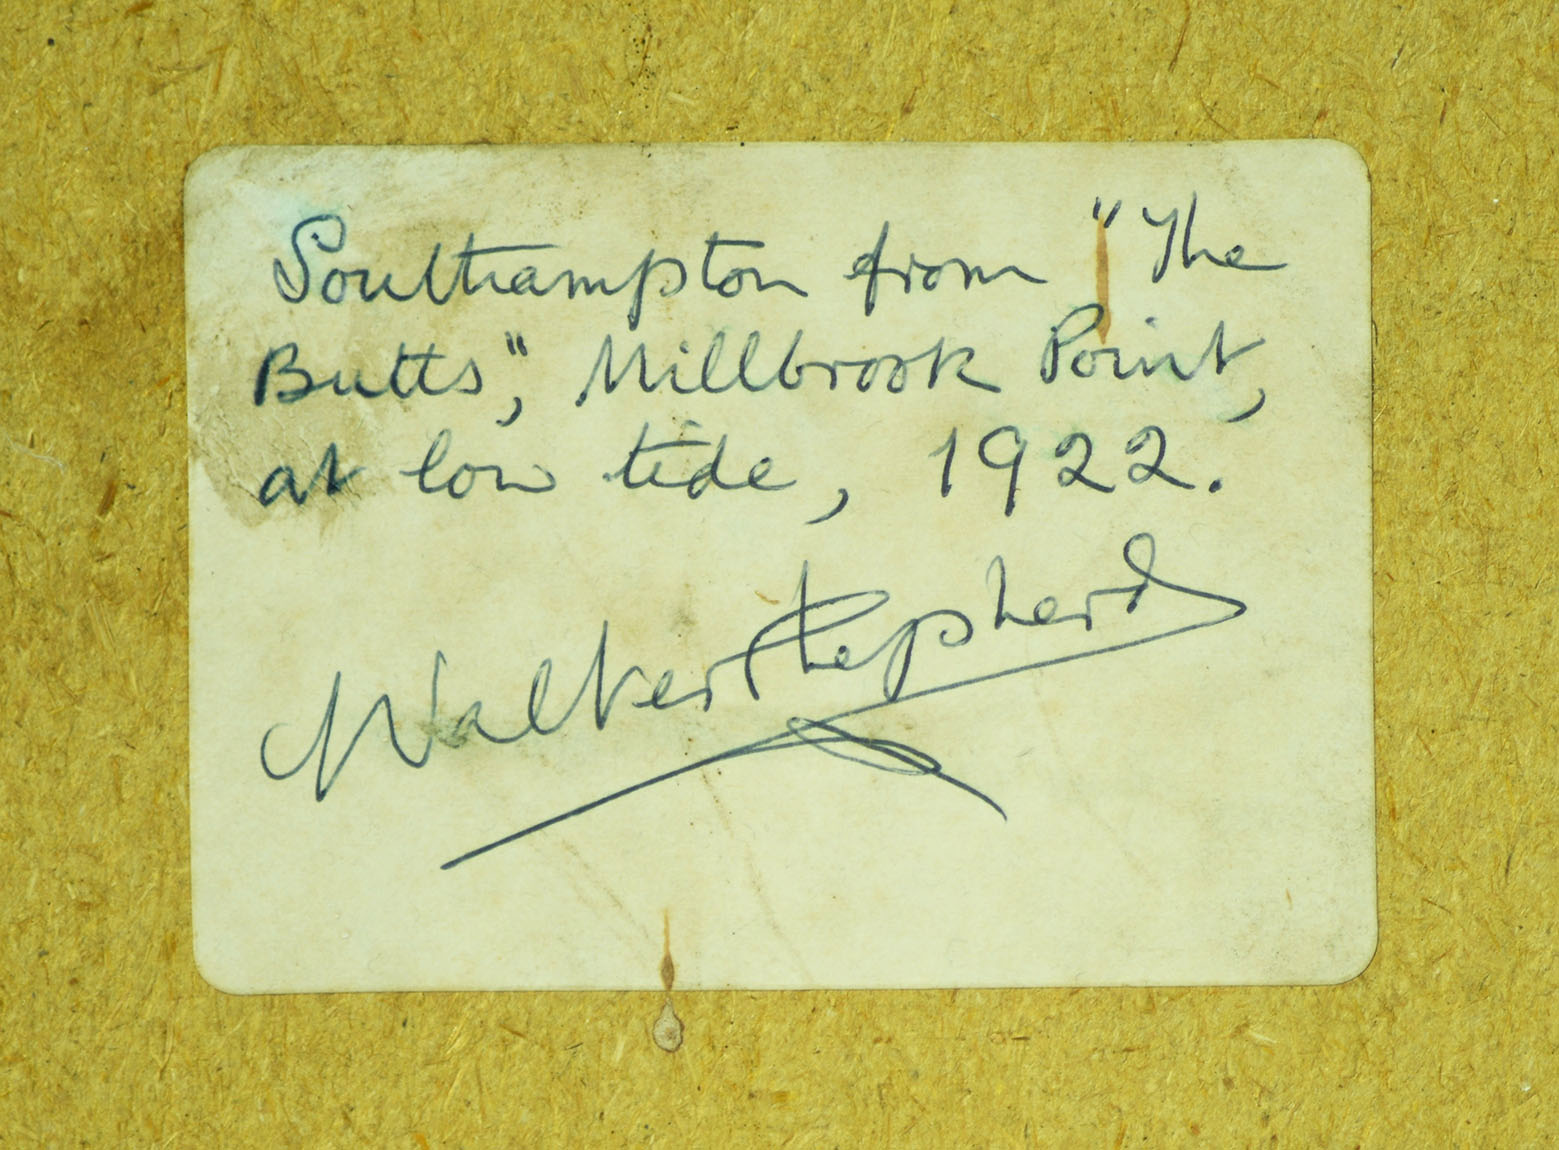 Southampton from "The
Butts", Millbrook Point,
at low tide, 1922.
Walter Shepherd